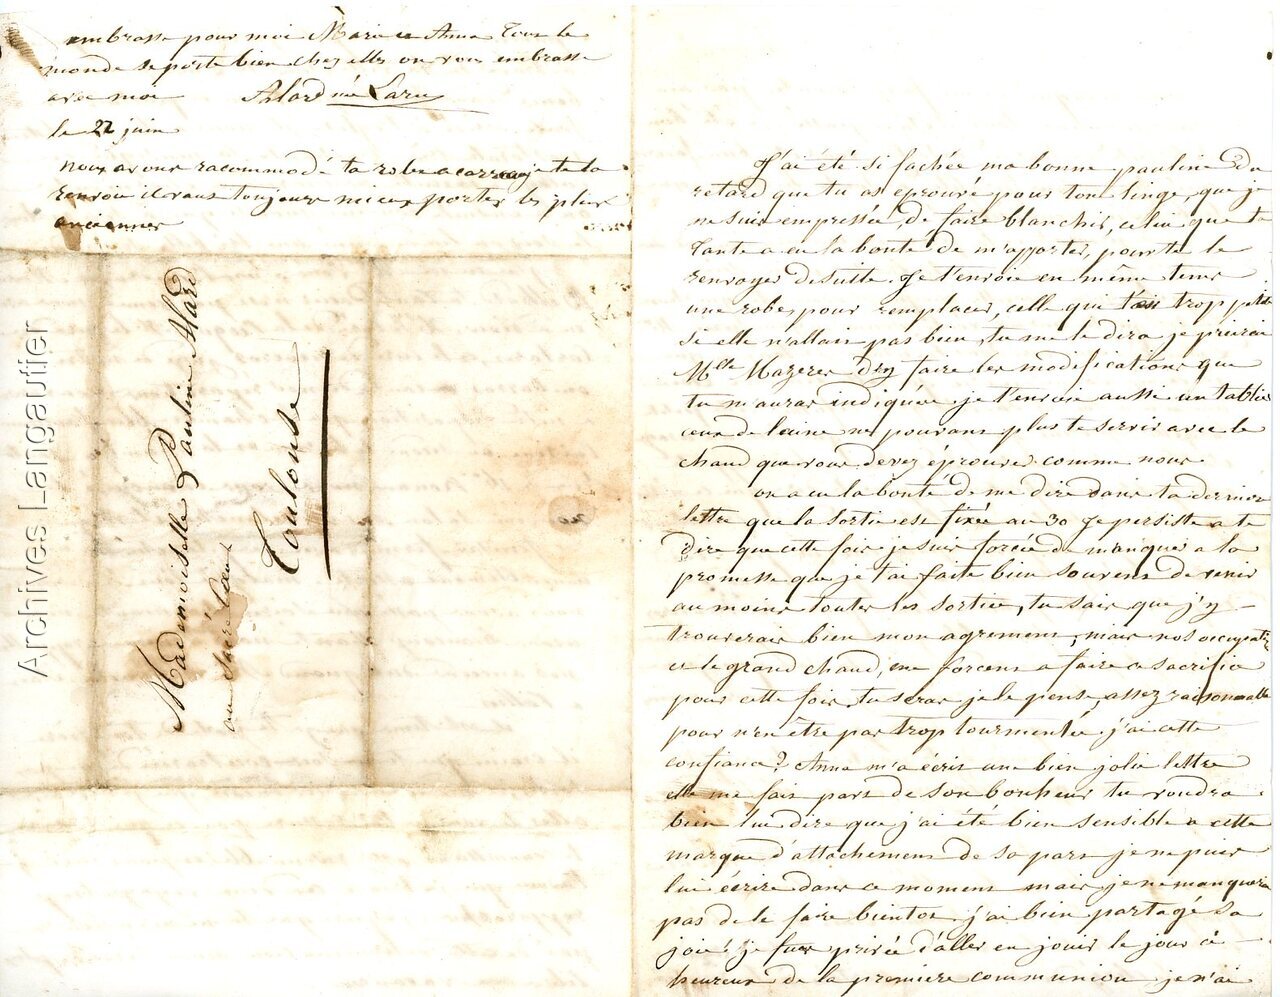 embrasse pour moi Marie et Anna Tout le
monde se porte bien chez elles on vous embrasse
avec moi Alard née Larue
le 22 juin
nous avons racommodé ta robe a carreaux je te la
renvoie devant toujours mieux porter les plus
anciennes
Mademoiselle Pauline Alard
au Sacré Coeur
Toulouse
Archives Langautier
J'ai été si fachée ma bonne pauline du
retard que tu as eprouvé pour ton linge, que je
me suis empressée, de faire blanchir, celui que ta
tante a eu la bonté de m'apporter, pour te le
renvoyer de suite. Je t'envoie en même tems
une robe, pour remplacer, celle qui t'est trop petite
si elle n'allait pas bien, tu me le dira, je prierai
Mlle Mazeres d'y faire les modifications que
tu m'auras indiquée. je t'envoie aussi un tablier
de laine ne pouvant plus te servir avec le
chaud que vous devez éprouver comme nous
on a eu la bonté de me dire dans ta derniere
lettre que la sortie est fixée au 30 Je persiste a te
dire que cette fois je suis forcée de manquer a la
promesse que je t'ai faite bien souvent de venir
au moins toutes les sortie, tu sais que j'y
trouverais bien mon agrement, mais nos occupation
et le grand chaud, me forcent a faire ce sacrifice
pour cette fois, tu seras je le pense, assez raisonnable
pour n'en être pas trop tourmentée, j'ai cette
confiance? Anna m'a écrit une bien jolie lettre
elle me fait part de son bonheur tu voudra
bien lui dire que j'ai été bien sensible a cette
marque d'attachement de sa part je ne puis
lui écrire dans ce moment mais je ne manquera
pas de le faire bientot j'ai bien partagé sa
joie! je fus privée d'aller en jouir le jour
heureux de la premiere communion je n'ai